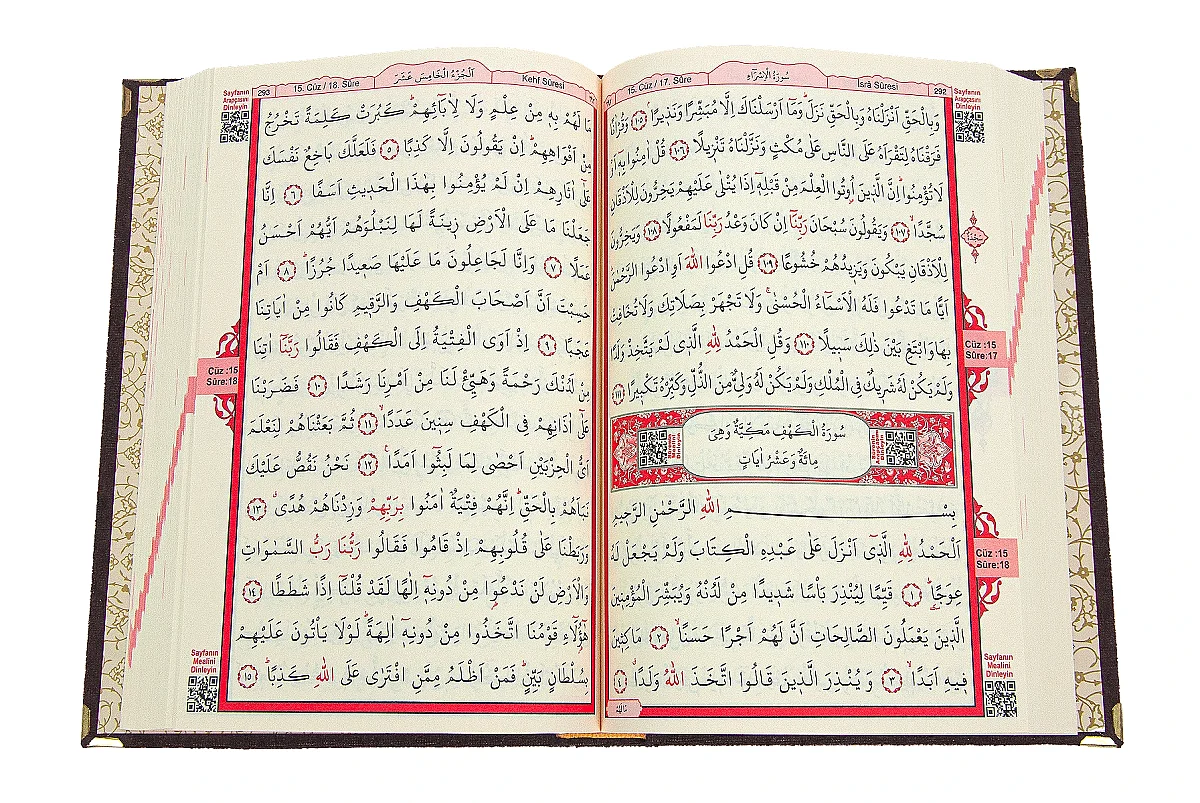 292
İsrâ Sûresi
سُورَةُ الْاِسْرَٓاءِ
15. Cüz / 17. Sûre
Sayfanın
Arapçasını
Dinleyin
وَبِالْحَقِّ اَنْزَلْنَاهُ وَبِالْحَقِّ نَزَلَۜ وَمَٓا اَرْسَلْنَاكَ اِلَّا مُبَشِّرًا وَنَذِيرًاۢ ﴿١٠٥﴾ وَقُرْاٰنًا
فَرَقْنَاهُ لِتَقْرَاَهُ عَلَى النَّاسِ عَلٰى مُكْثٍ وَنَزَّلْنَاهُ تَنْزِيلًا ﴿١٠٦﴾ قُلْ اٰمِنُوا بِهٖٓ اَوْ
لَا تُؤْمِنُواۜ اِنَّ الَّذٖينَ اُو۫تُوا الْعِلْمَ مِنْ قَبْلِهٖٓ اِذَا يُتْلٰى عَلَيْهِمْ يَخِرُّونَ لِلْاَذْقَانِ
سُجَّدًاۙ ﴿١٠٧﴾ وَيَقُولُونَ سُبْحَانَ رَبِّنَٓا اِنْ كَانَ وَعْدُ رَبِّنَا لَمَفْعُولًا ﴿١٠٨﴾ وَيَخِرُّونَ
لِلْاَذْقَانِ يَبْكُونَ وَيَزٖيدُهُمْ خُشُوعًا ﴿١٠٩﴾ قُلِ ادْعُوا اللّٰهَ اَوِ ادْعُوا الرَّحْمٰنَۜ
اَيًّا مَا تَدْعُوا فَلَهُ الْاَسْمَٓاءُ الْحُسْنٰىۚ وَلَا تَجْهَرْ بِصَلَاتِكَ وَلَا تُخَافِتْ
بِهَا وَابْتَغِ بَيْنَ ذٰلِكَ سَبٖيلًا ﴿١١٠﴾ وَقُلِ الْحَمْدُ لِلّٰهِ الَّذٖي لَمْ يَتَّخِذْ وَلَدًا
وَلَمْ يَكُنْ لَهُ شَرٖيكٌ فِي الْمُلْكِ وَلَمْ يَكُنْ لَهُ وَلِيٌّ مِنَ الذُّلِّ وَكَبِّرْهُ تَكْبٖيرًا ﴿١١١﴾
Cüz :15
Sûre:17
سُورَةُ الْكَهْفِ مَكِّيَّةٌ وَهِيَ
مِائَةٌ وَعَشْرُ اٰيَاتٍ
بِسْمِ اللّٰهِ الرَّحْمٰنِ الرَّحٖيمِ
اَلْحَمْدُ لِلّٰهِ الَّذٖٓي اَنْزَلَ عَلٰى عَبْدِهِ الْكِتَابَ وَلَمْ يَجْعَلْ لَهُ
عِوَجًاۜ ﴿١﴾ قَيِّمًا لِيُنْذِرَ بَاْسًا شَدٖيدًا مِنْ لَدُنْهُ وَيُبَشِّرَ الْمُؤْمِنٖينَ
الَّذٖينَ يَعْمَلُونَ الصَّالِحَاتِ اَنَّ لَهُمْ اَجْرًا حَسَنًاۙ ﴿٢﴾ مَاكِثٖينَ
فٖيهِ اَبَدًاۙ ﴿٣﴾ وَيُنْذِرَ الَّذٖينَ قَالُوا اتَّخَذَ اللّٰهُ وَلَدًاۗ ﴿٤﴾
Cüz :15
Sûre:18
Sayfanın
Mealini
Dinleyin
مَا لَهُمْ
293
15. Cüz / 18. Sûre
اَلْجُزْءُ الْخَامِسَ عَشَرَ
Kehf Sûresi
Sayfanın
Arapçasını
Dinleyin
مَا لَهُمْ بِهٖ مِنْ عِلْمٍ وَلَا لِاٰبَٓائِهِمْۜ كَبُرَتْ كَلِمَةً تَخْرُجُ
مِنْ اَفْوَاهِهِمْۜ اِنْ يَقُولُونَ اِلَّا كَذِبًا ﴿٥﴾ فَلَعَلَّكَ بَاخِعٌ نَفْسَكَ
عَلٰٓى اٰثَارِهِمْ اِنْ لَمْ يُؤْمِنُوا بِهٰذَا الْحَدٖيثِ اَسَفًا ﴿٦﴾ اِنَّا
جَعَلْنَا مَا عَلَى الْاَرْضِ زٖينَةً لَهَا لِنَبْلُوَهُمْ اَيُّهُمْ اَحْسَنُ
عَمَلًا ﴿٧﴾ وَاِنَّا لَجَاعِلُونَ مَا عَلَيْهَا صَعٖيدًا جُرُزًاۜ ﴿٨﴾ اَمْ
حَسِبْتَ اَنَّ اَصْحَابَ الْكَهْفِ وَالرَّقٖيمِ كَانُوا مِنْ اٰيَاتِنَا
عَجَبًا ﴿٩﴾ اِذْ اَوَى الْفِتْيَةُ اِلَى الْكَهْفِ فَقَالُوا رَبَّنَٓا اٰتِنَا
مِنْ لَدُنْكَ رَحْمَةً وَهَيِّئْ لَنَا مِنْ اَمْرِنَا رَشَدًا ﴿١٠﴾ فَضَرَبْنَا
عَلٰٓى اٰذَانِهِمْ فِي الْكَهْفِ سِنٖينَ عَدَدًاۙ ﴿١١﴾ ثُمَّ بَعَثْنَاهُمْ لِنَعْلَمَ
اَيُّ الْحِزْبَيْنِ اَحْصٰى لِمَا لَبِثُٓوا اَمَدًاۚ ﴿١٢﴾ نَحْنُ نَقُصُّ عَلَيْكَ
نَبَاَهُمْ بِالْحَقِّۜ اِنَّهُمْ فِتْيَةٌ اٰمَنُوا بِرَبِّهِمْ وَزِدْنَاهُمْ هُدًىۗ ﴿١٣﴾
وَرَبَطْنَا عَلٰى قُلُوبِهِمْ اِذْ قَامُوا فَقَالُوا رَبُّنَا رَبُّ السَّمٰوَاتِ
وَالْاَرْضِ لَنْ نَدْعُوَ۬ا مِنْ دُونِهٖٓ اِلٰهًا لَقَدْ قُلْنَٓا اِذًا شَطَطًا ﴿١٤﴾
هٰٓؤُ۬لَٓاءِ قَوْمُنَا اتَّخَذُوا مِنْ دُونِهٖٓ اٰلِهَةًۜ لَوْلَا يَاْتُونَ عَلَيْهِمْ
بِسُلْطَانٍ بَيِّنٍۜ فَمَنْ اَظْلَمُ مِمَّنِ افْتَرٰى عَلَى اللّٰهِ كَذِبًاۜ ﴿١٥﴾
Cüz :15
Sûre:18
Sayfanın
Mealini
Dinleyin